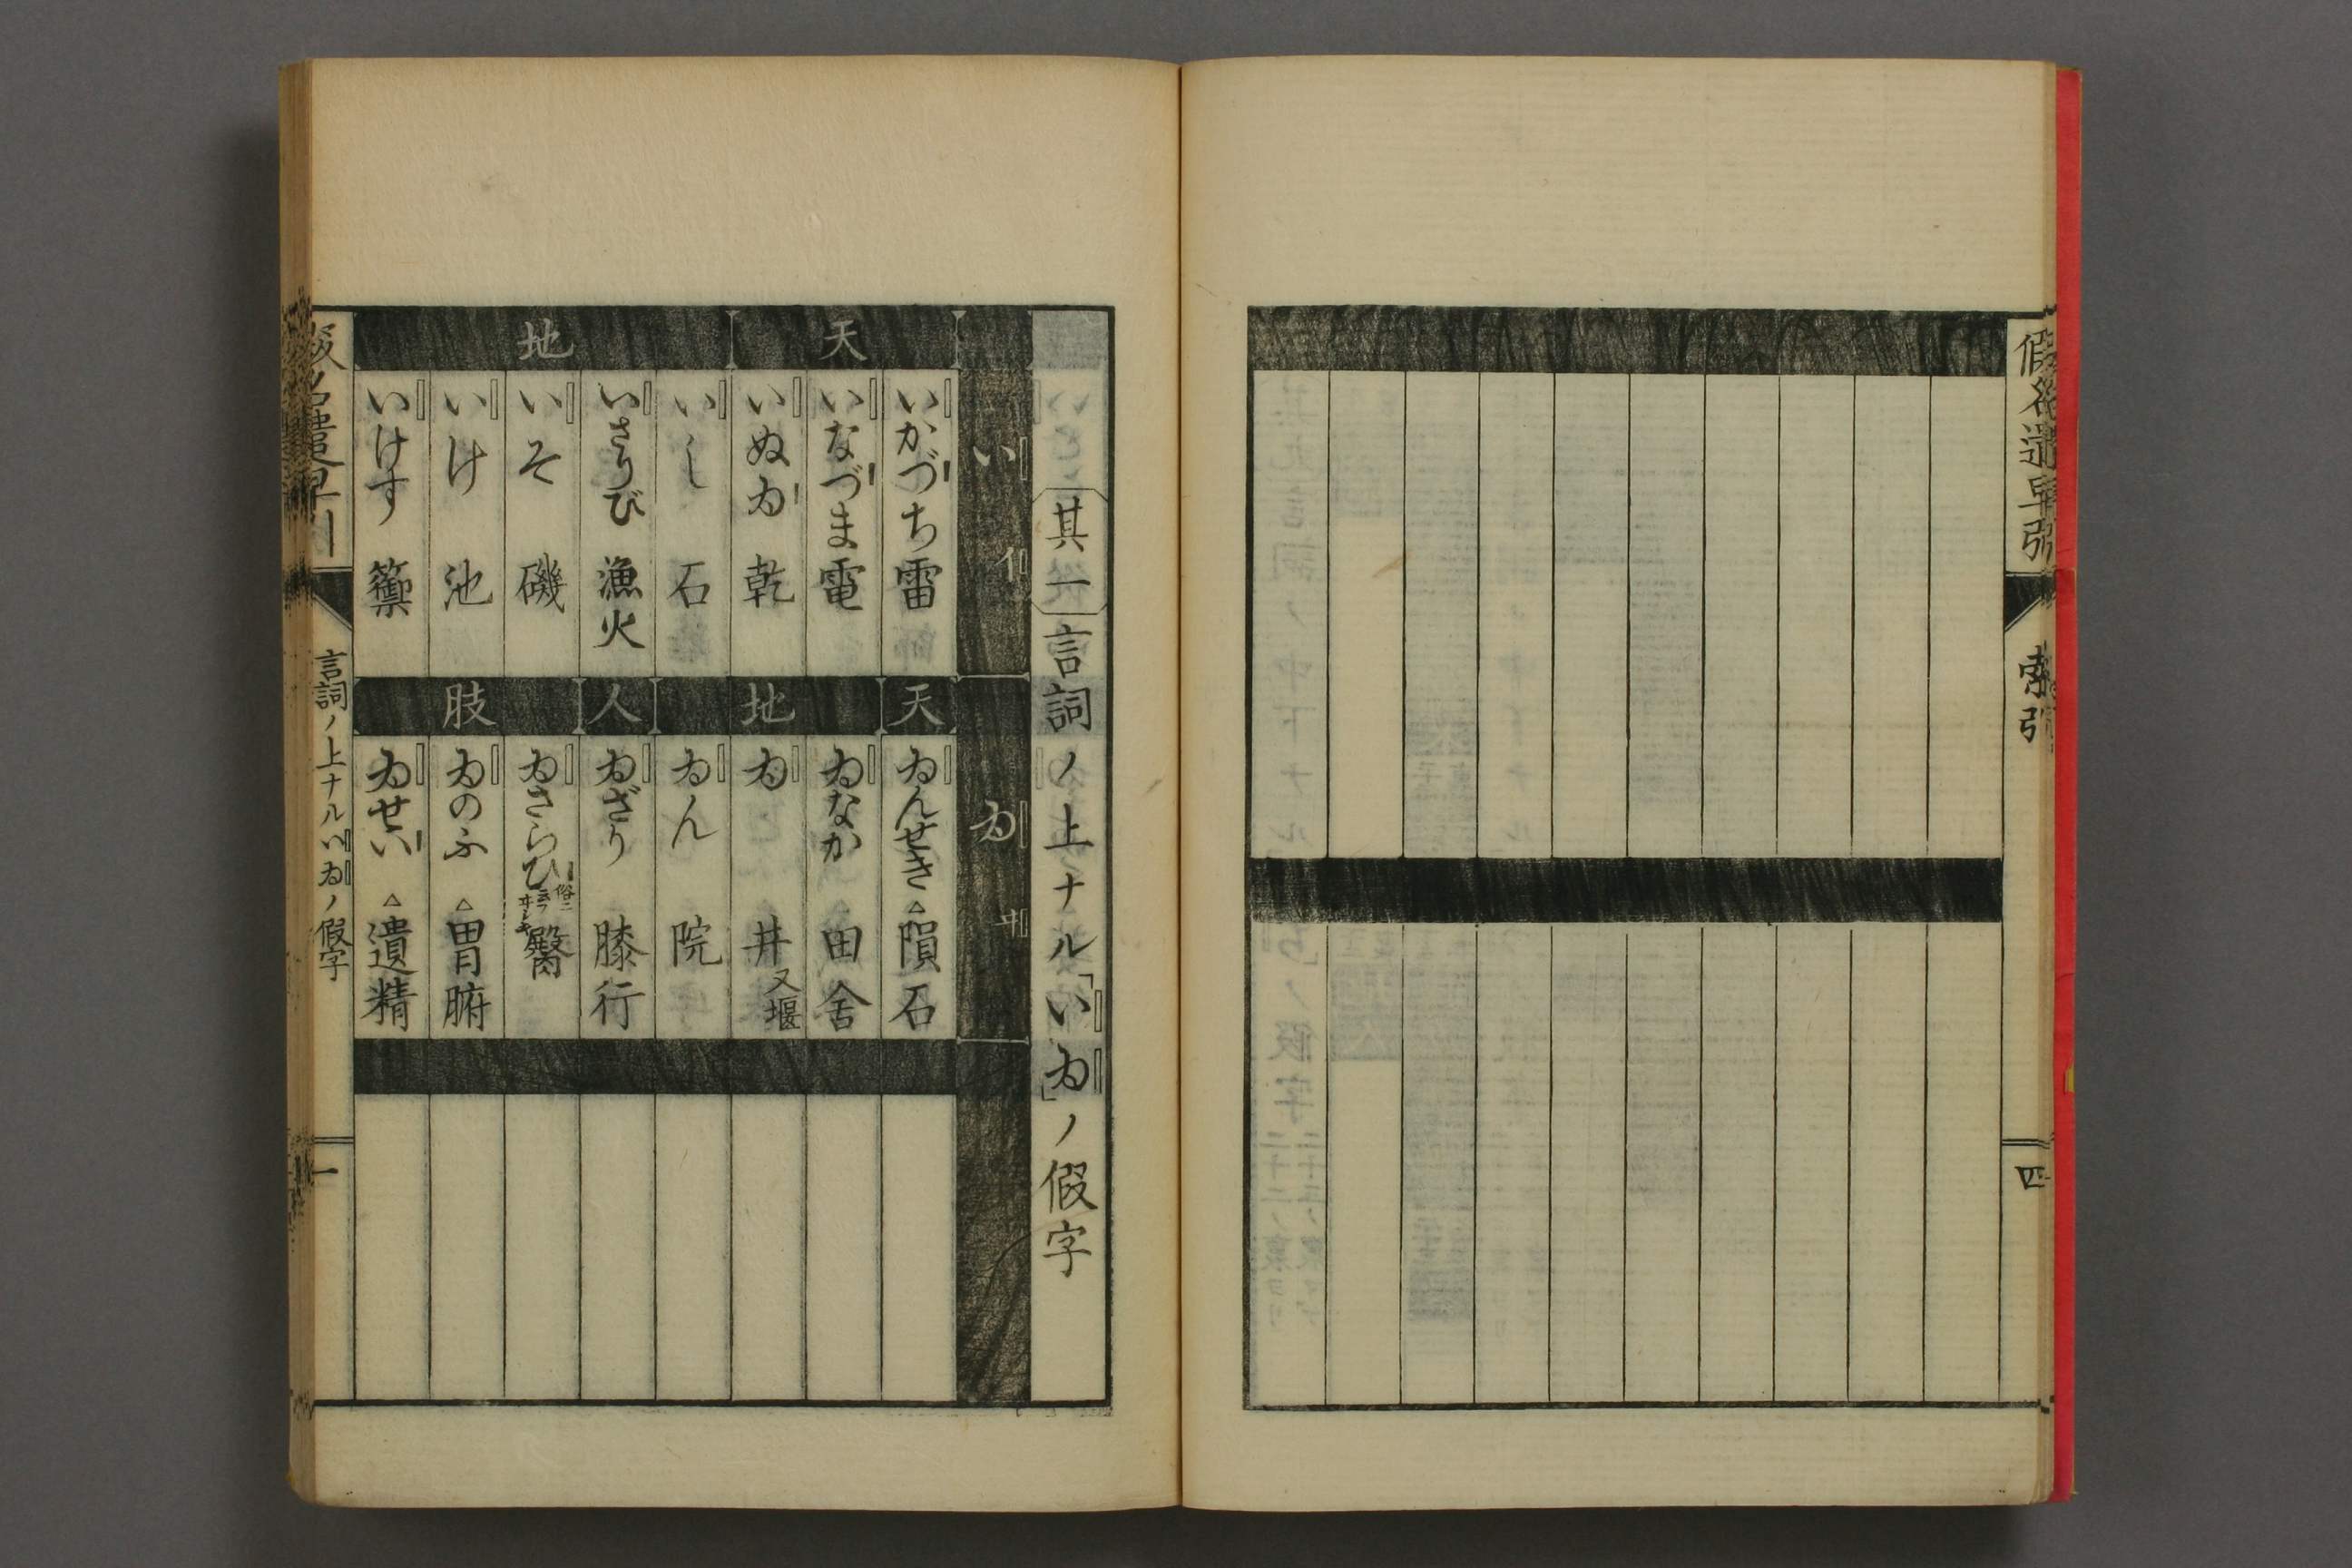 假名遣早引
索引
四
其一 言詞ノ上ナル「いゐ」ノ假字
い イ
天
いかづち 雷
いなづま 電
いぬゐ 乾
地
いし 石
いさりび 漁火
いそ 磯
いけ 池
いけす 籞
ゐ ヰ
天
ゐんせき △隕石
地
ゐなか 田舎
ゐ 井 又堰
ゐん 院
人
ゐざり 膝行
肢
ゐさらひ 俗ニ云フヰシキ 臀
ゐのふ △胃腑
ゐせい △遺精
假名遣早引
言詞ノ上ナルいゐノ假字
一